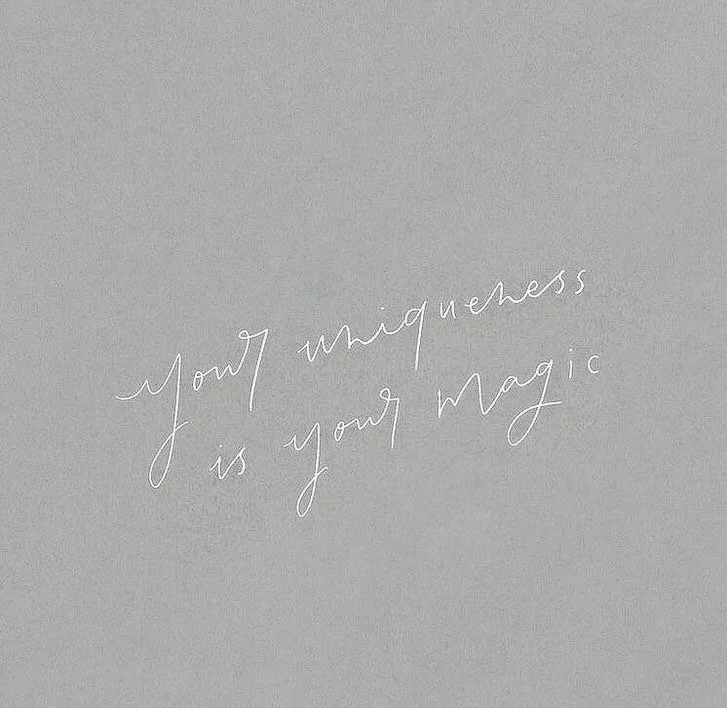 your uniqueness
is your magic